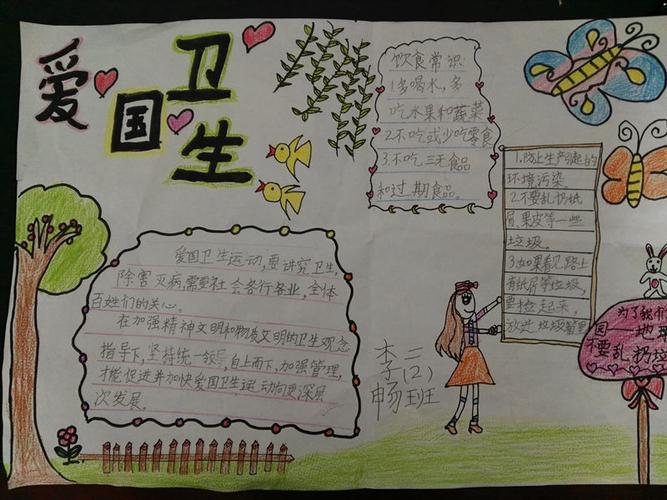 爱国卫生
饮食常识:
1.多喝水,多
吃水果和蔬菜
2.不吃或少吃零食
3.不吃三无食品
和过期食品。
1.防止生产引起的
环境污染。
2.不要乱扔纸
屑、果皮等一些
垃圾。
3.如果看见路上
有纸屑等垃圾,
要捡起来,
放进垃圾箱里
爱国卫生运动,要讲究卫生,
除害灭病,需要社会各行各业,全体
百姓们的关心。
在加强精神文明和物质文明的卫生观念
指导下,坚持统一领导,自上而下,加强管理,
才能促进并加快爱国卫生运动向更深层
次发展。
三(2)班
李畅
为了我们
不要乱扔垃